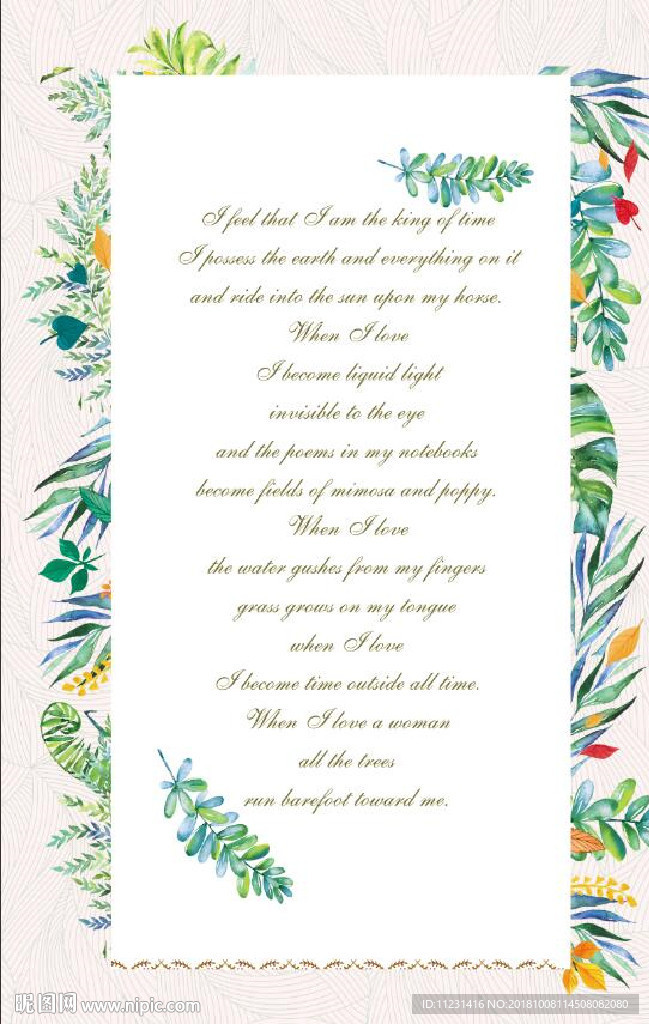 I feel that I am the king of time
I possess the earth and everything on it
and ride into the sun upon my horse.
When I love
I become liquid light
invisible to the eye
and the poems in my notebooks
become fields of mimosa and poppy.
When I love
the water gushes from my fingers
grass grows on my tongue
when I love
I become time outside all time.
When I love a woman
all the trees
run barefoot toward me.
昵图网 www.nipic.com
ID:11231416 NO:20181008114508082080